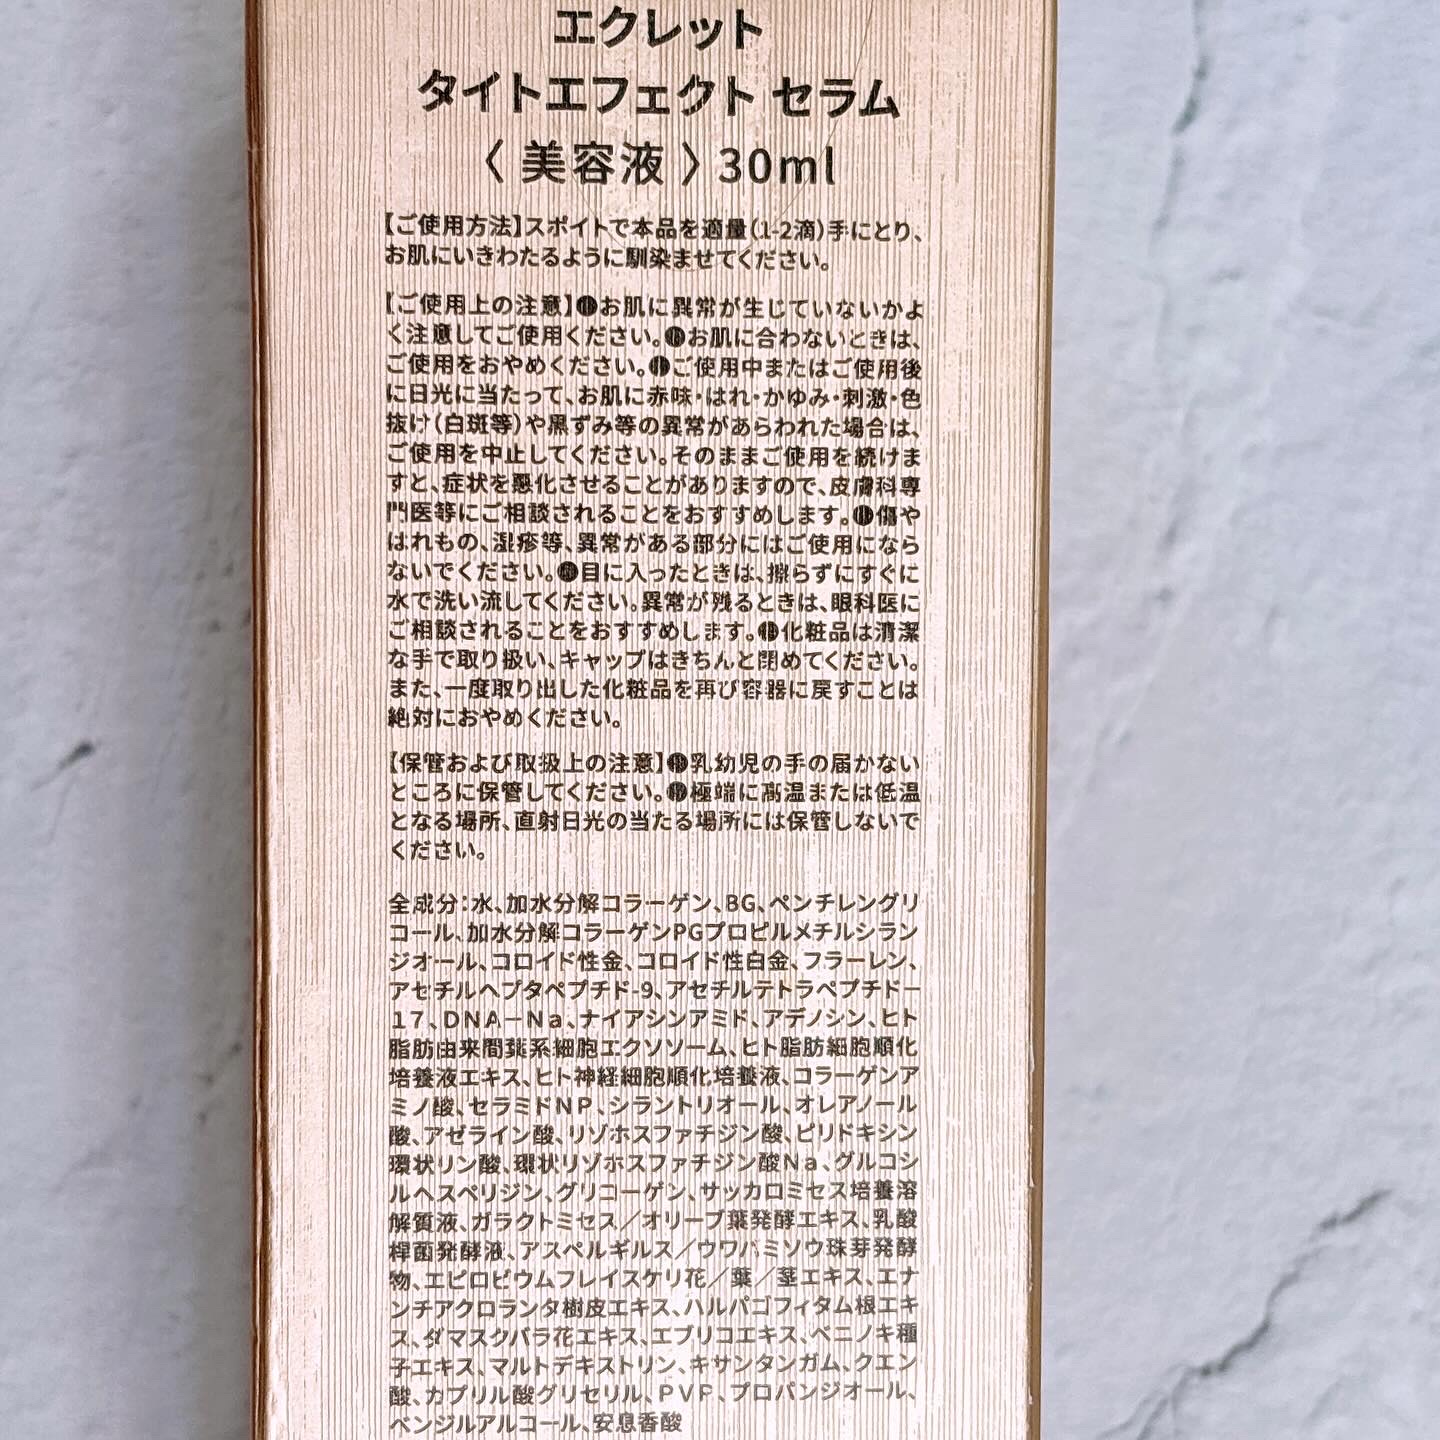 エクレット
タイトエフェクト セラム
〈 美容液 〉30ml
【ご使用方法】スポイトで本品を適量(1-2滴)手にとり、
お肌にいきわたるように馴染ませてください。
【ご使用上の注意】●お肌に異常が生じていないかよ
く注意してご使用ください。●お肌に合わないときは、
ご使用をおやめください。●ご使用中またはご使用後
に日光に当たって、お肌に赤味・はれ・かゆみ・刺激・色
抜け(白斑等)や黒ずみ等の異常があらわれた場合は、
ご使用を中止してください。そのままご使用を続けま
すと、症状を悪化させることがありますので、皮膚科専
門医等にご相談されることをおすすめします。●傷や
はれもの、湿疹等、異常がある部分にはご使用になら
ないでください。●目に入ったときは、擦らずにすぐに
水で洗い流してください。異常が残るときは、眼科医に
ご相談されることをおすすめします。●化粧品は清潔
な手で取り扱い、キャップはきちんと閉めてください。
また、一度取り出した化粧品を再び容器に戻すことは
絶対におやめください。
【保管および取扱上の注意】●乳幼児の手の届かない
ところに保管してください。●極端に高温または低温
となる場所、直射日光の当たる場所には保管しないで
ください。
全成分：水、加水分解コラーゲン、BG、ペンチレングリ
コール、加水分解コラーゲンPGプロピルメチルシラン
ジオール、コロイド性金、コロイド性白金、フラーレン、
アセチルヘプタペプチド-9、アセチルテトラペプチドー
17、DNA－Na、ナイアシンアミド、アデノシン、ヒト
脂肪由来間葉系細胞エクソソーム、ヒト脂肪細胞順化
培養液エキス、ヒト神経細胞順化培養液、コラーゲンア
ミノ酸、セラミドNP、シラントリオール、オレアノール
酸、アゼライン酸、リゾホスファチジン酸、ピリドキシン
環状リン酸、環状リゾホスファチジン酸Na、グルコシ
ルヘスペリジン、グリコーゲン、サッカロミセス培養溶
解質液、ガラクトミセス／オリーブ葉発酵エキス、乳酸
桿菌発酵液、アスペルギルス／ウワバミソウ珠芽発酵
物、エピロビウムフレイスケリ花／葉／茎エキス、エナ
ンチアクロランタ樹皮エキス、ハルパゴフィタム根エキ
ス、ダマスクバラ花エキス、エブリコエキス、ベニノキ種
子エキス、マルトデキストリン、キサンタンガム、クエン
酸、カプリル酸グリセリル、PVP、プロパンジオール、
ベンジルアルコール、安息香酸